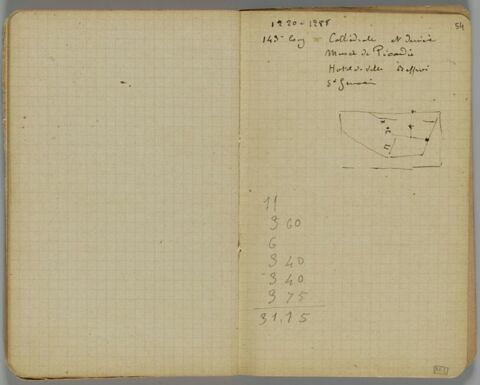 54
1220-1288
145m long = Cathédrale N Dame
Musée de Picardie
Hotel de Ville Beffroi
St Germain
11
3 60
6
3 40
3 40
3 75
31,15